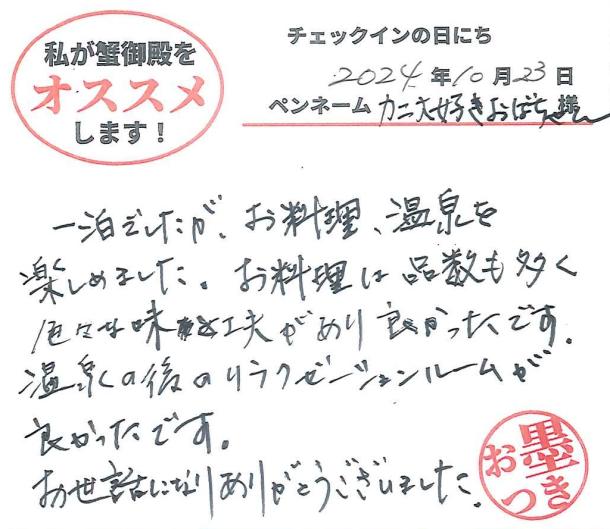 私が蟹御殿を
オススメ
します！
チェックインの日にち
2024年10月23日
ペンネーム カニ大好きおばちゃん様
一泊でしたが、お料理、温泉を
楽しめました。お料理は品数も多く
色々な味と工夫があり良かったです。
温泉の後のリラクゼーションルームが
良かったです。
お世話になりありがとうございました。
お墨
つき